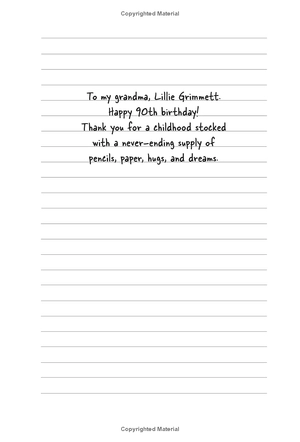 Copyrighted Material
To my grandma, Lillie Grimmett.
Happy 90th birthday!
Thank you for a childhood stocked
with a never-ending supply of
pencils, paper, hugs, and dreams.
Copyrighted Material